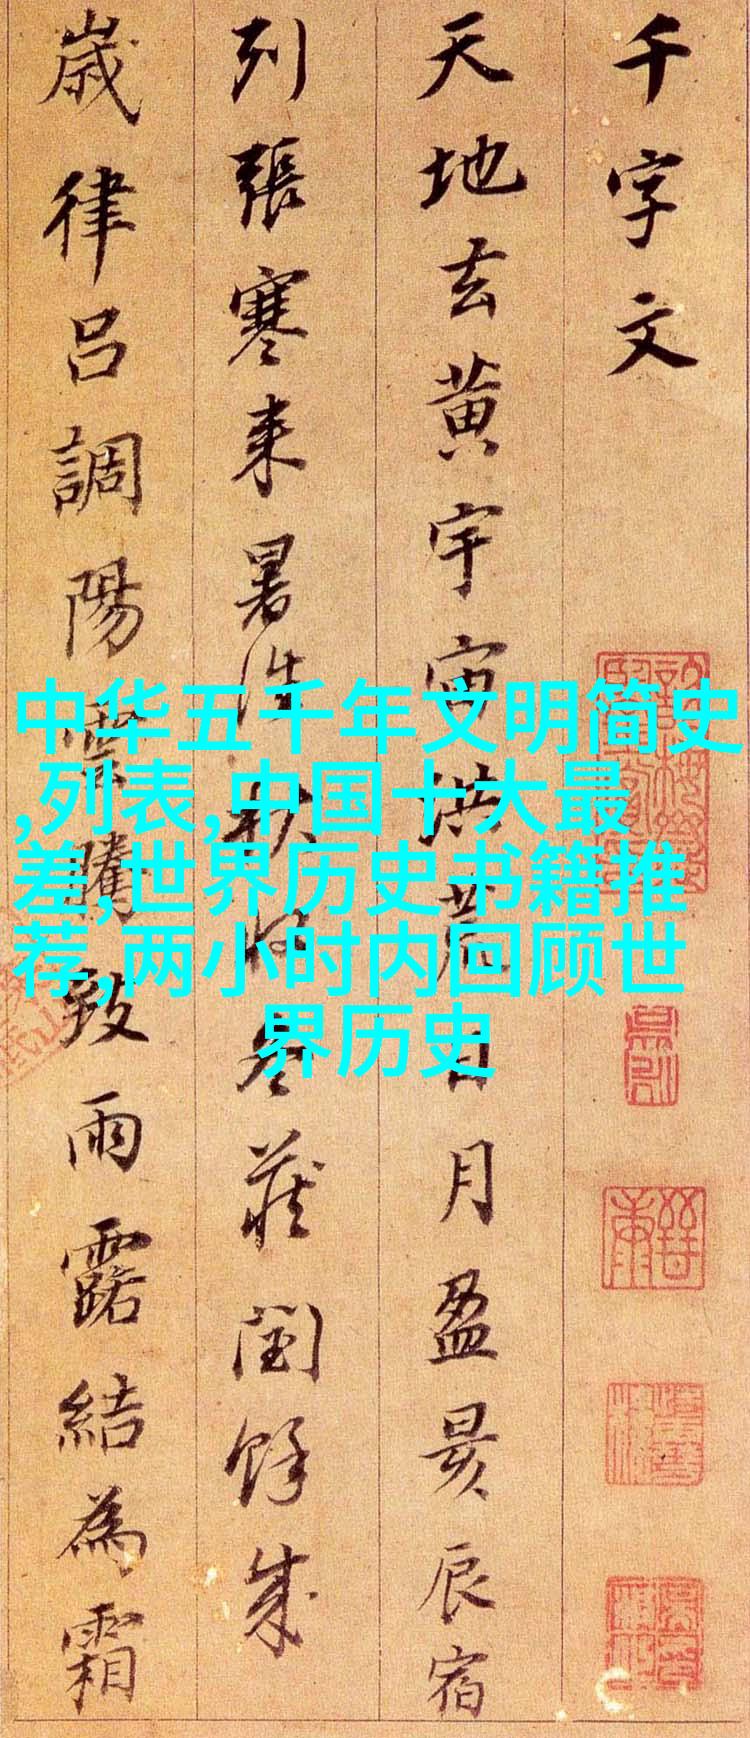 千字文
天地玄黄宇宙洪荒日月盈昃辰宿
列張寒来暑往秋收冬蔵閏餘成
歲律呂調陽雲騰致雨露結為霜
中华五千年文明简史
,列表,中国十大最
差,世界历史书籍推
荐,两小时内回顾世
界历史